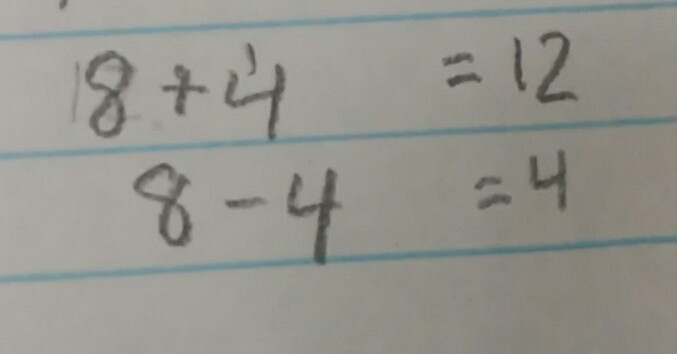 8 + 4 = 12
8 - 4 = 4